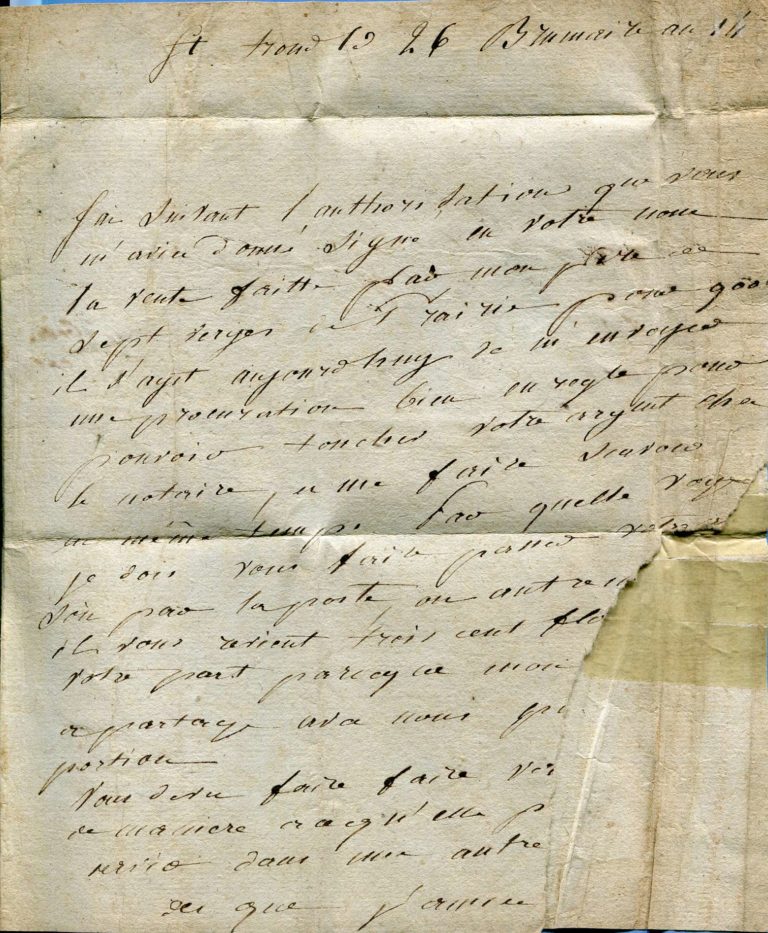 St trond le 26 Brumaire an 14
J'ai suivant l'authorisation que vous
m'aviez donné signé en votre nom
la vente faitte par mon pere de
sept verges de Prairie pour
il s'agit aujourdhuy de m'envoyer
une procuration bien en regle pour
pouvoir toucher votre argent chez
le notaire, et me faire scavoir
en même temps par quelle voye
je dois vous faire passer votre
soit par la poste, ou autrem
il vous revient trois cent flo
votre part parceque mon
a partagé avec nous
portion
Vous devez faire faire
de maniere a ce qu'elle p
servir dans une autre
des que j'aurai